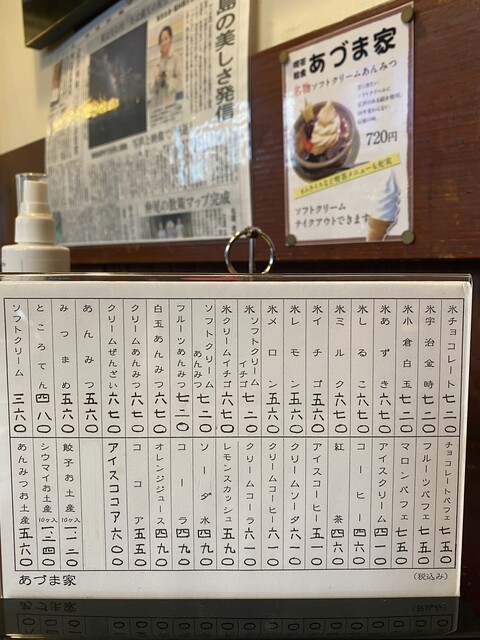 島の美しさ発信
写真と映像
仲尾の散策マップ完成
喫茶
軽食
あづま家
名物ソフトクリームあんみつ
720円
ソフトクリーム
テイクアウトできます
氷チョコレート 七二〇
氷宇治金時 七二〇
氷小倉白玉 七二〇
氷あずき 六七〇
氷しるこ 六七〇
氷ミルク 六七〇
氷イチゴ 五六〇
氷レモン 五六〇
氷メロン 五六〇
氷ソフトクリームイチゴ 七二〇
氷クリームイチゴ 六七〇
ソフトクリームあんみつ 七二〇
フルーツあんみつ 七二〇
白玉あんみつ 六七〇
クリームあんみつ 六七〇
クリームぜんざい 六七〇
あんみつ 五六〇
みつまめ 五六〇
ところてん 四八〇
ソフトクリーム 三六〇
チョコレートパフェ 七五〇
フルーツパフェ 七五〇
マロンパフェ 七五〇
アイスクリーム 四一〇
コーヒー 四六〇
紅茶 四六〇
アイスコーヒー 五一〇
クリームソーダ 六一〇
クリームコーヒー 六一〇
クリームコーラ 六一〇
レモンスカッシュ 五九〇
ソーダ水 四九〇
コーラ 四九〇
オレンジジュース 四九〇
ココア 五五〇
アイスココア 六〇〇
餃子お土産 10ヶ入 一、一二〇
シウマイお土産 10ヶ入 一、二四〇
あんみつお土産 五六〇
あづま家
(税込み)